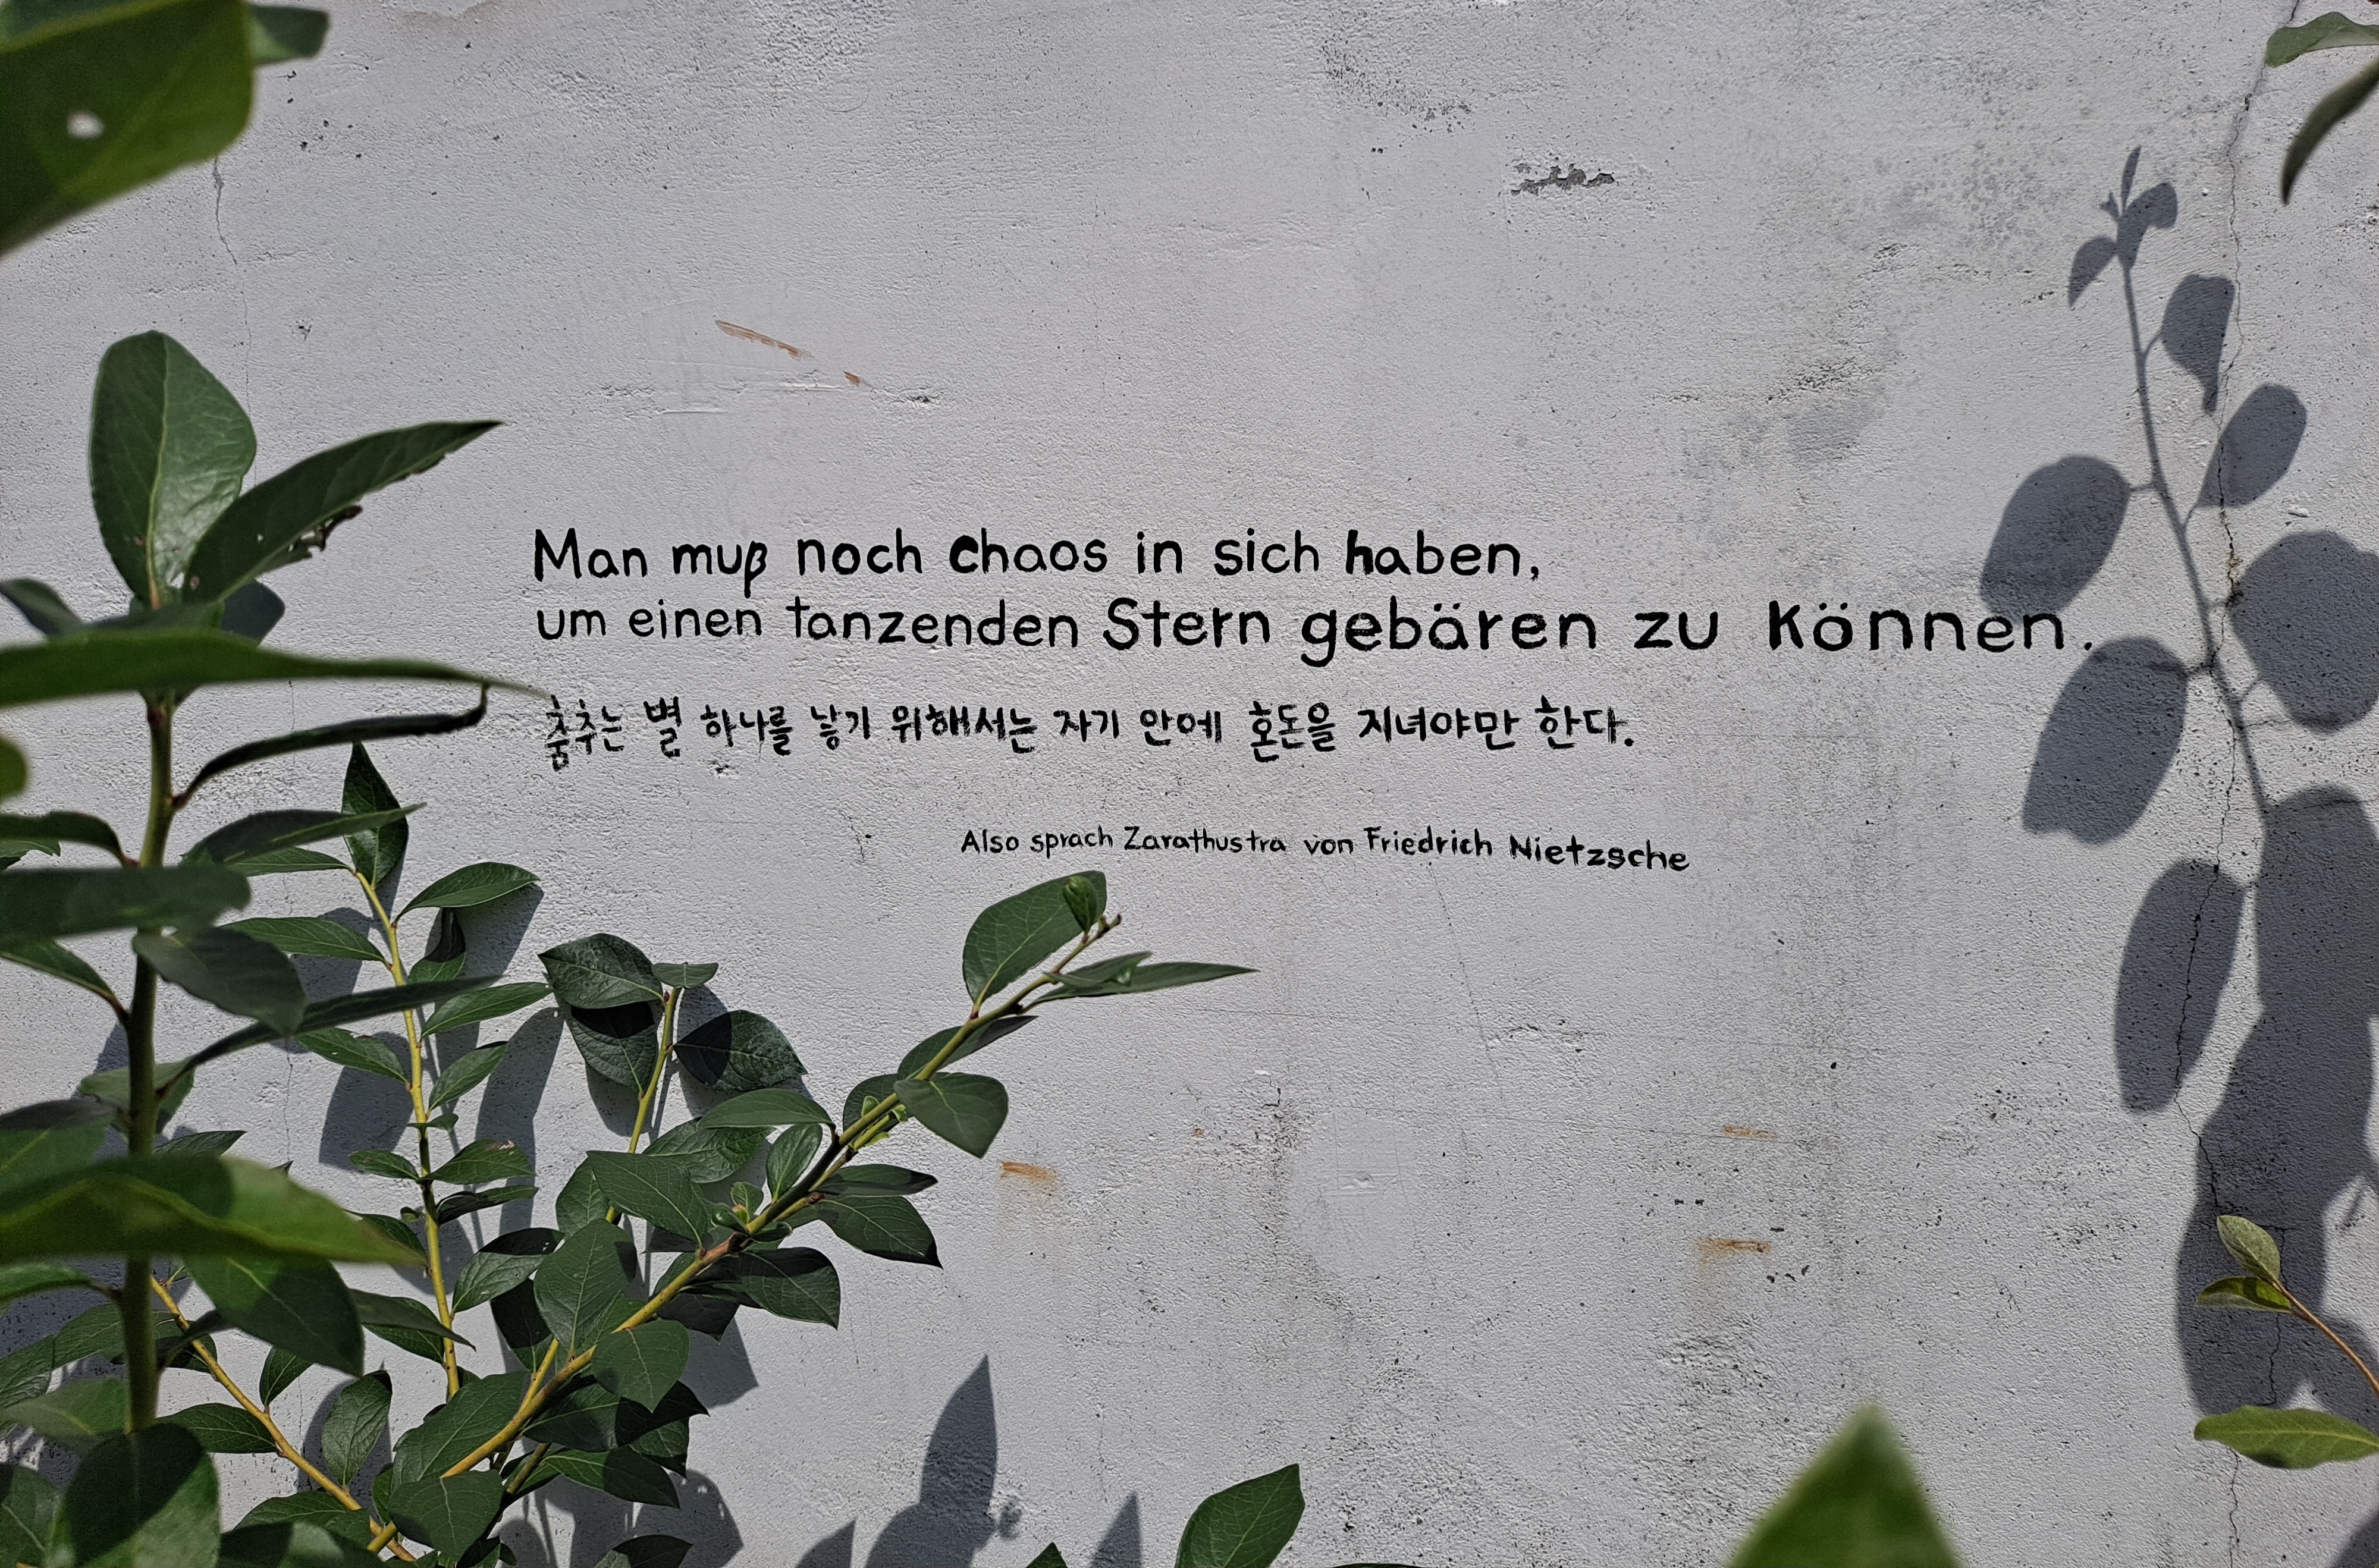 Man muß noch chaos in sich haben,
um einen tanzenden Stern gebären zu können.
춤추는 별 하나를 낳기 위해서는 자기 안에 혼돈을 지녀야만 한다.
Also sprach Zarathustra von Friedrich Nietzsche